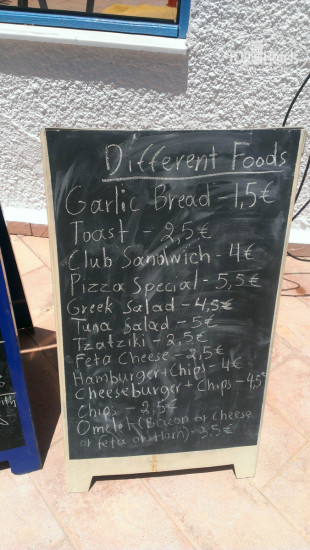 Different Foods
Garlic Bread - 1,5€
Toast - 2,5€
Club Sandwich - 4€
Pizza Special - 5,5€
Greek Salad - 4,5€
Tuna Salad - 5€
Tzatziki - 2,5€
Feta Cheese - 2,5€
Hamburger + Chips - 4€
Cheeseburger + Chips - 4,5€
Chips - 2,5€
Omelet (Bacon or Cheese
or feta or Ham) - 3,5€